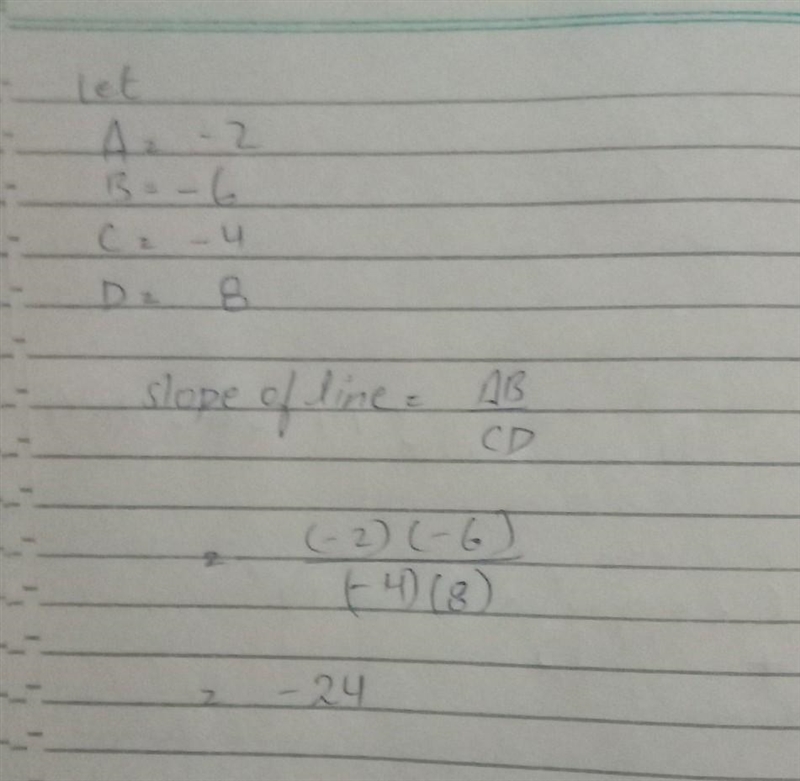 let
A = -2
B = -6
C = -4
D = 8
slope of line = AB
CD
= (-2) (-6)
(-4) (8)
= -24